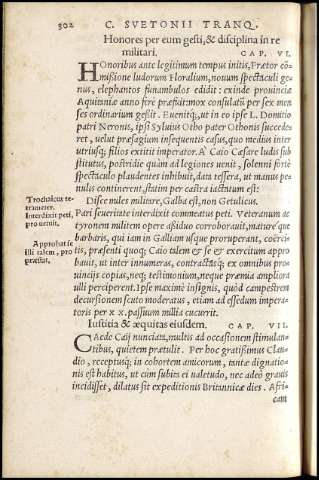 302 C. SVETONII TRANQ.
Honores per eum gesti, & disciplina in re
militari. CAP. VI.
Honoribus ante legitimum tempus initis, Prætor cõ-
missione ludorum Floralium, nouum spectaculi ge-
nus, elephantos funambulos edidit: exinde prouinciæ
Aquitaniæ anno ferè præfuit: mox consulatũ per sex men
ses ordinarium gessit. Euenitq́; ut in eo ipse L. Domitio
patri Neronis, ipsi Syluius Otho pater Othonis succede
ret, uelut præsagium insequentis casus, quo medius inter
utriusq; filios extitit imperator. A Caio Cæsare Iudi sub
stitutus, postridie quàm ad legiones uenit, solenni fortè
spectaculo plaudentes inhibuit, data tessera, ut manus pe
nulis continerent, statim per castra iactatum est:
Trochaicus te-
trameter.
Interdixit peti,
pro uetuit.
Approbatus
illi talem, pro
præsens,
Disce miles militare, Galba est, non Getulicus.
Pari seueritate interdixit commeatus peti. Veteranum ac
tyronem militem opere assiduo corroborauit, matureq́ue
barbaris, qui iam in Galliam usque proruperant, coërci-
tis, præsenti quoq; Caio talem & se & exercitum appro
bauit, ut inter innumeras, contractasq́; ex omnibus pro-
uincijs copias, neq; testimonium, neque præmia ampliora
ulli perciperent. Ipse maximè insignis, quòd campestrem
decursionem scuto moderatus, etiam ad essedum impera-
toris per x x. passuum millia cucurrit.
Iustitia & æquitas eiusdem. CAP. VII.
Cæde Caij nunciata, multis ad occasionem stimulan-
tibus, quietem prætulit. Per hoc gratissimus Clau-
dio, receptusq́; in cohortem amicorum, tantæ dignatio-
nis est habitus, ut cùm subita ei ualetudo, nec adeò grauis
incidisset, dilatus sit expeditionis Britannicæ dies. Afri-
cam